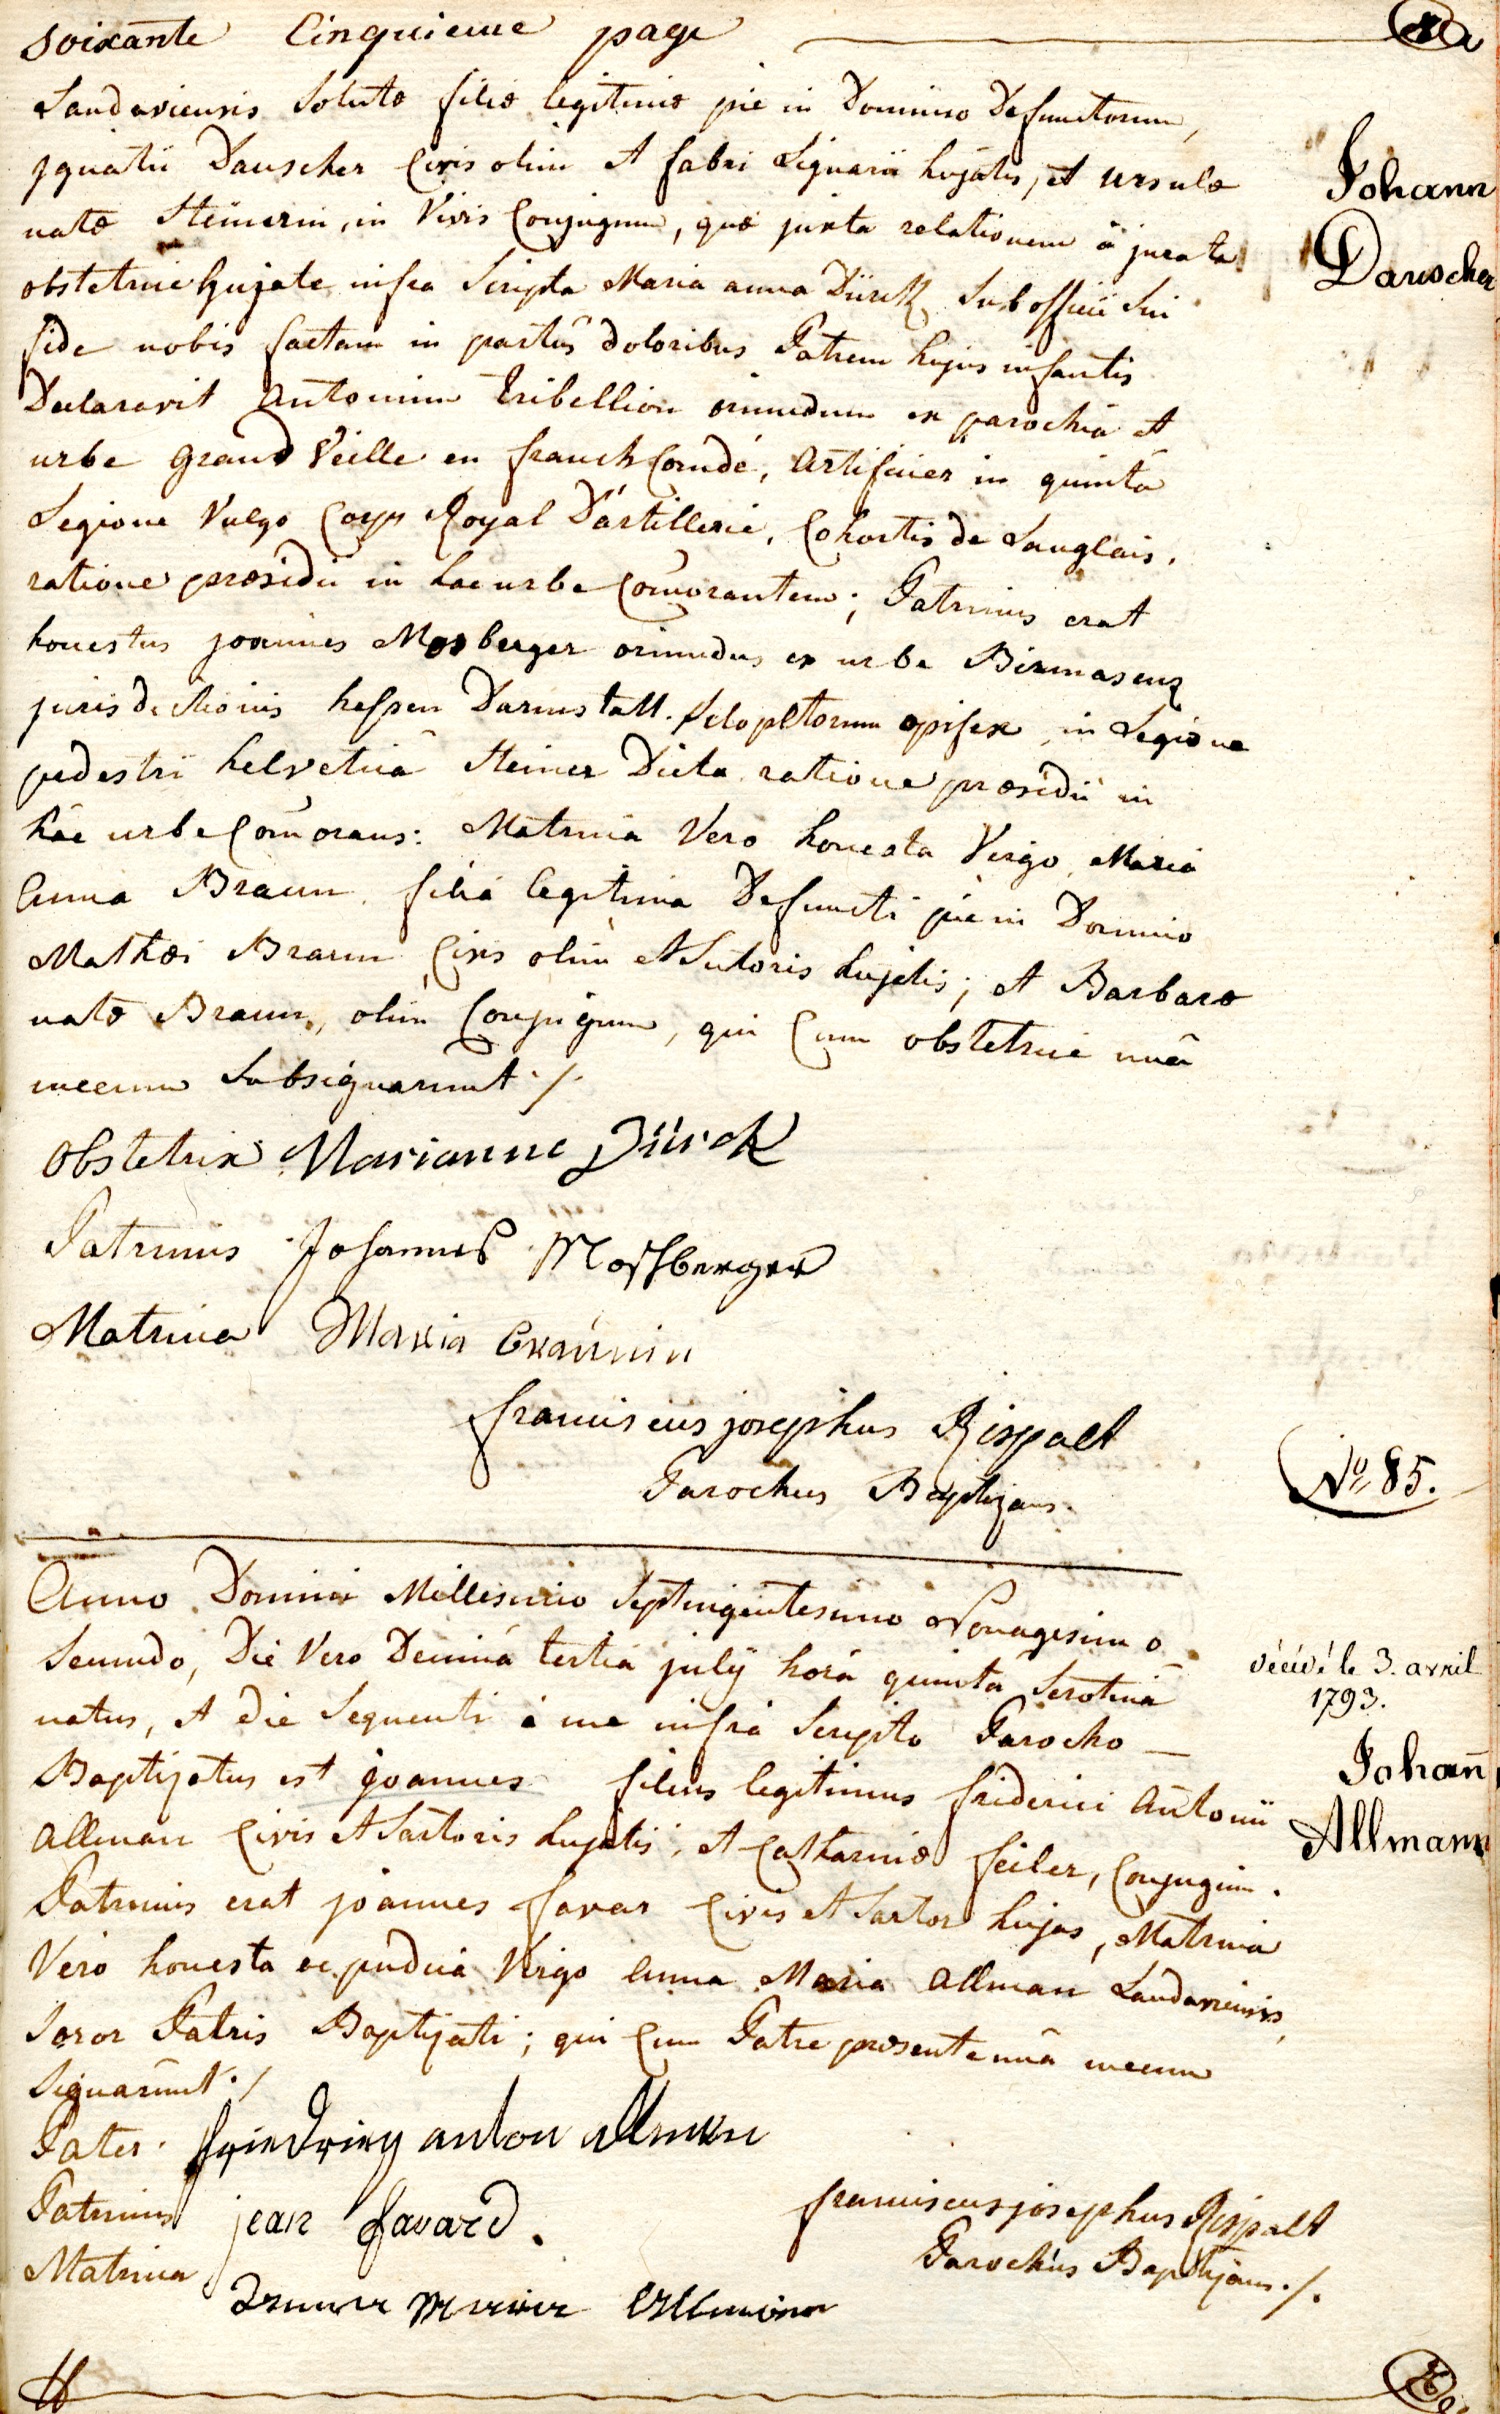 soixante Cinquieme page
Landaviensis Solutæ filiæ legitimæ pie in Domino Defunctorum,
jgnatii Dauscher Civis olim et fabri Lignarii hujatis, et ursulæ
natæ Steinerin, in Vivis Conjugum, quæ juxta relationem à jurata
obstetrice hujate infra Scripta Maria anna Dürck Sub officii Sui
fide nobis factam in partûs doloribus Patrem hujus infantis
Declaravit antonium Tribellion oriundum ex parochiâ et
urbe grand Veille en franch Comdé, artificier in quintâ
Legione Vulgo Corps Royal D'artillerie, Cohortis de Langlais,
ratione præsidii in hac urbe Com̄orantem; Patrinus erat
honestus joannes Mosberger oriundus ex urbe Birmasens
jurisdictionis hessen Darmstatt. Sclopetorum opifex in Legione
pedestri helvetica Steiner Dicta ratione præsidii in
hâc urbe Com̄orans: Matrina Vero honesta Virgo Maria
Anna Braun filia legitima Defuncti pie in Domino
Mathæi Braun Civis olim et Sutoris hujatis; et Barbaræ
natæ Braun, olim Conjugum, qui Cum obstetrice unâ
mecum Subsignarunt ./.
Obstetrix Marianne Dürck
Patrinus Johannes Mossberger
Matrina Maria Braunin
franciscus josephus Rispalt
Parochus Baptizans.
Johann
Dauscher
N° 85.
Anno Domini Millesimo Septingentesimo Nonagesimo
Secundo, Die Vero Decimâ tertiâ julÿ horâ quintâ Serotinâ
natus, et die Sequenti à me infrà Scripto Parocho —
Baptizatus est joannes filius legitimus friderici antonii
allman Civis et Sartoris hujatis, et Catharinæ feiler, Conjugum.
Patrinus erat joannes favar Civis et Sartor hujas, Matrina
Vero honesta ac pudica Virgo anna Maria allman Landaviensis,
Soror Patris Baptizati; qui Cum Patre præsente unâ mecum
Signarunt ./
Pater. friedrich anton allman
Patrinus jean favard.
Matrina Anna Maria Allmann
franciscus josephus Rispalt
Parochus Baptizans ./.
décédé le 3. avril
1793.
Johan̄
Allmann